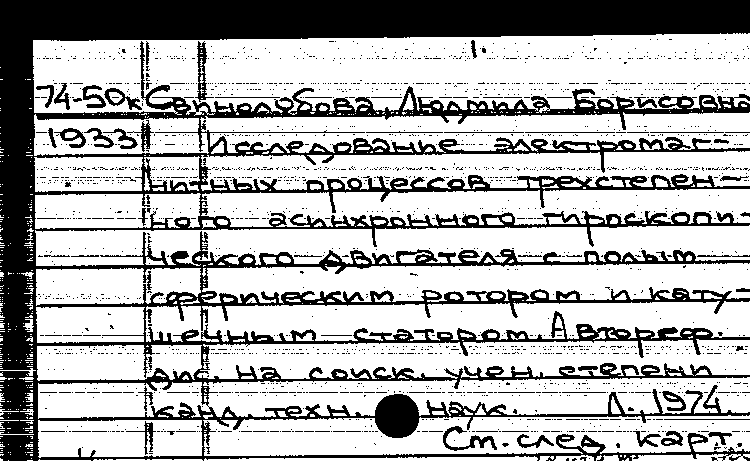 1.
74-50к Свинолобова, Людмила Борисовна
1933 Исследование электромаг-
нитных процессов трехстепен-
ного асинхронного гироскопи-
ческого двигателя с полым
сферическим ротором и кату-
шечным статором. Автореф.
дис. на соиск. учен. степени
канд. техн. наук. Л., 1974.
См. след. карт.